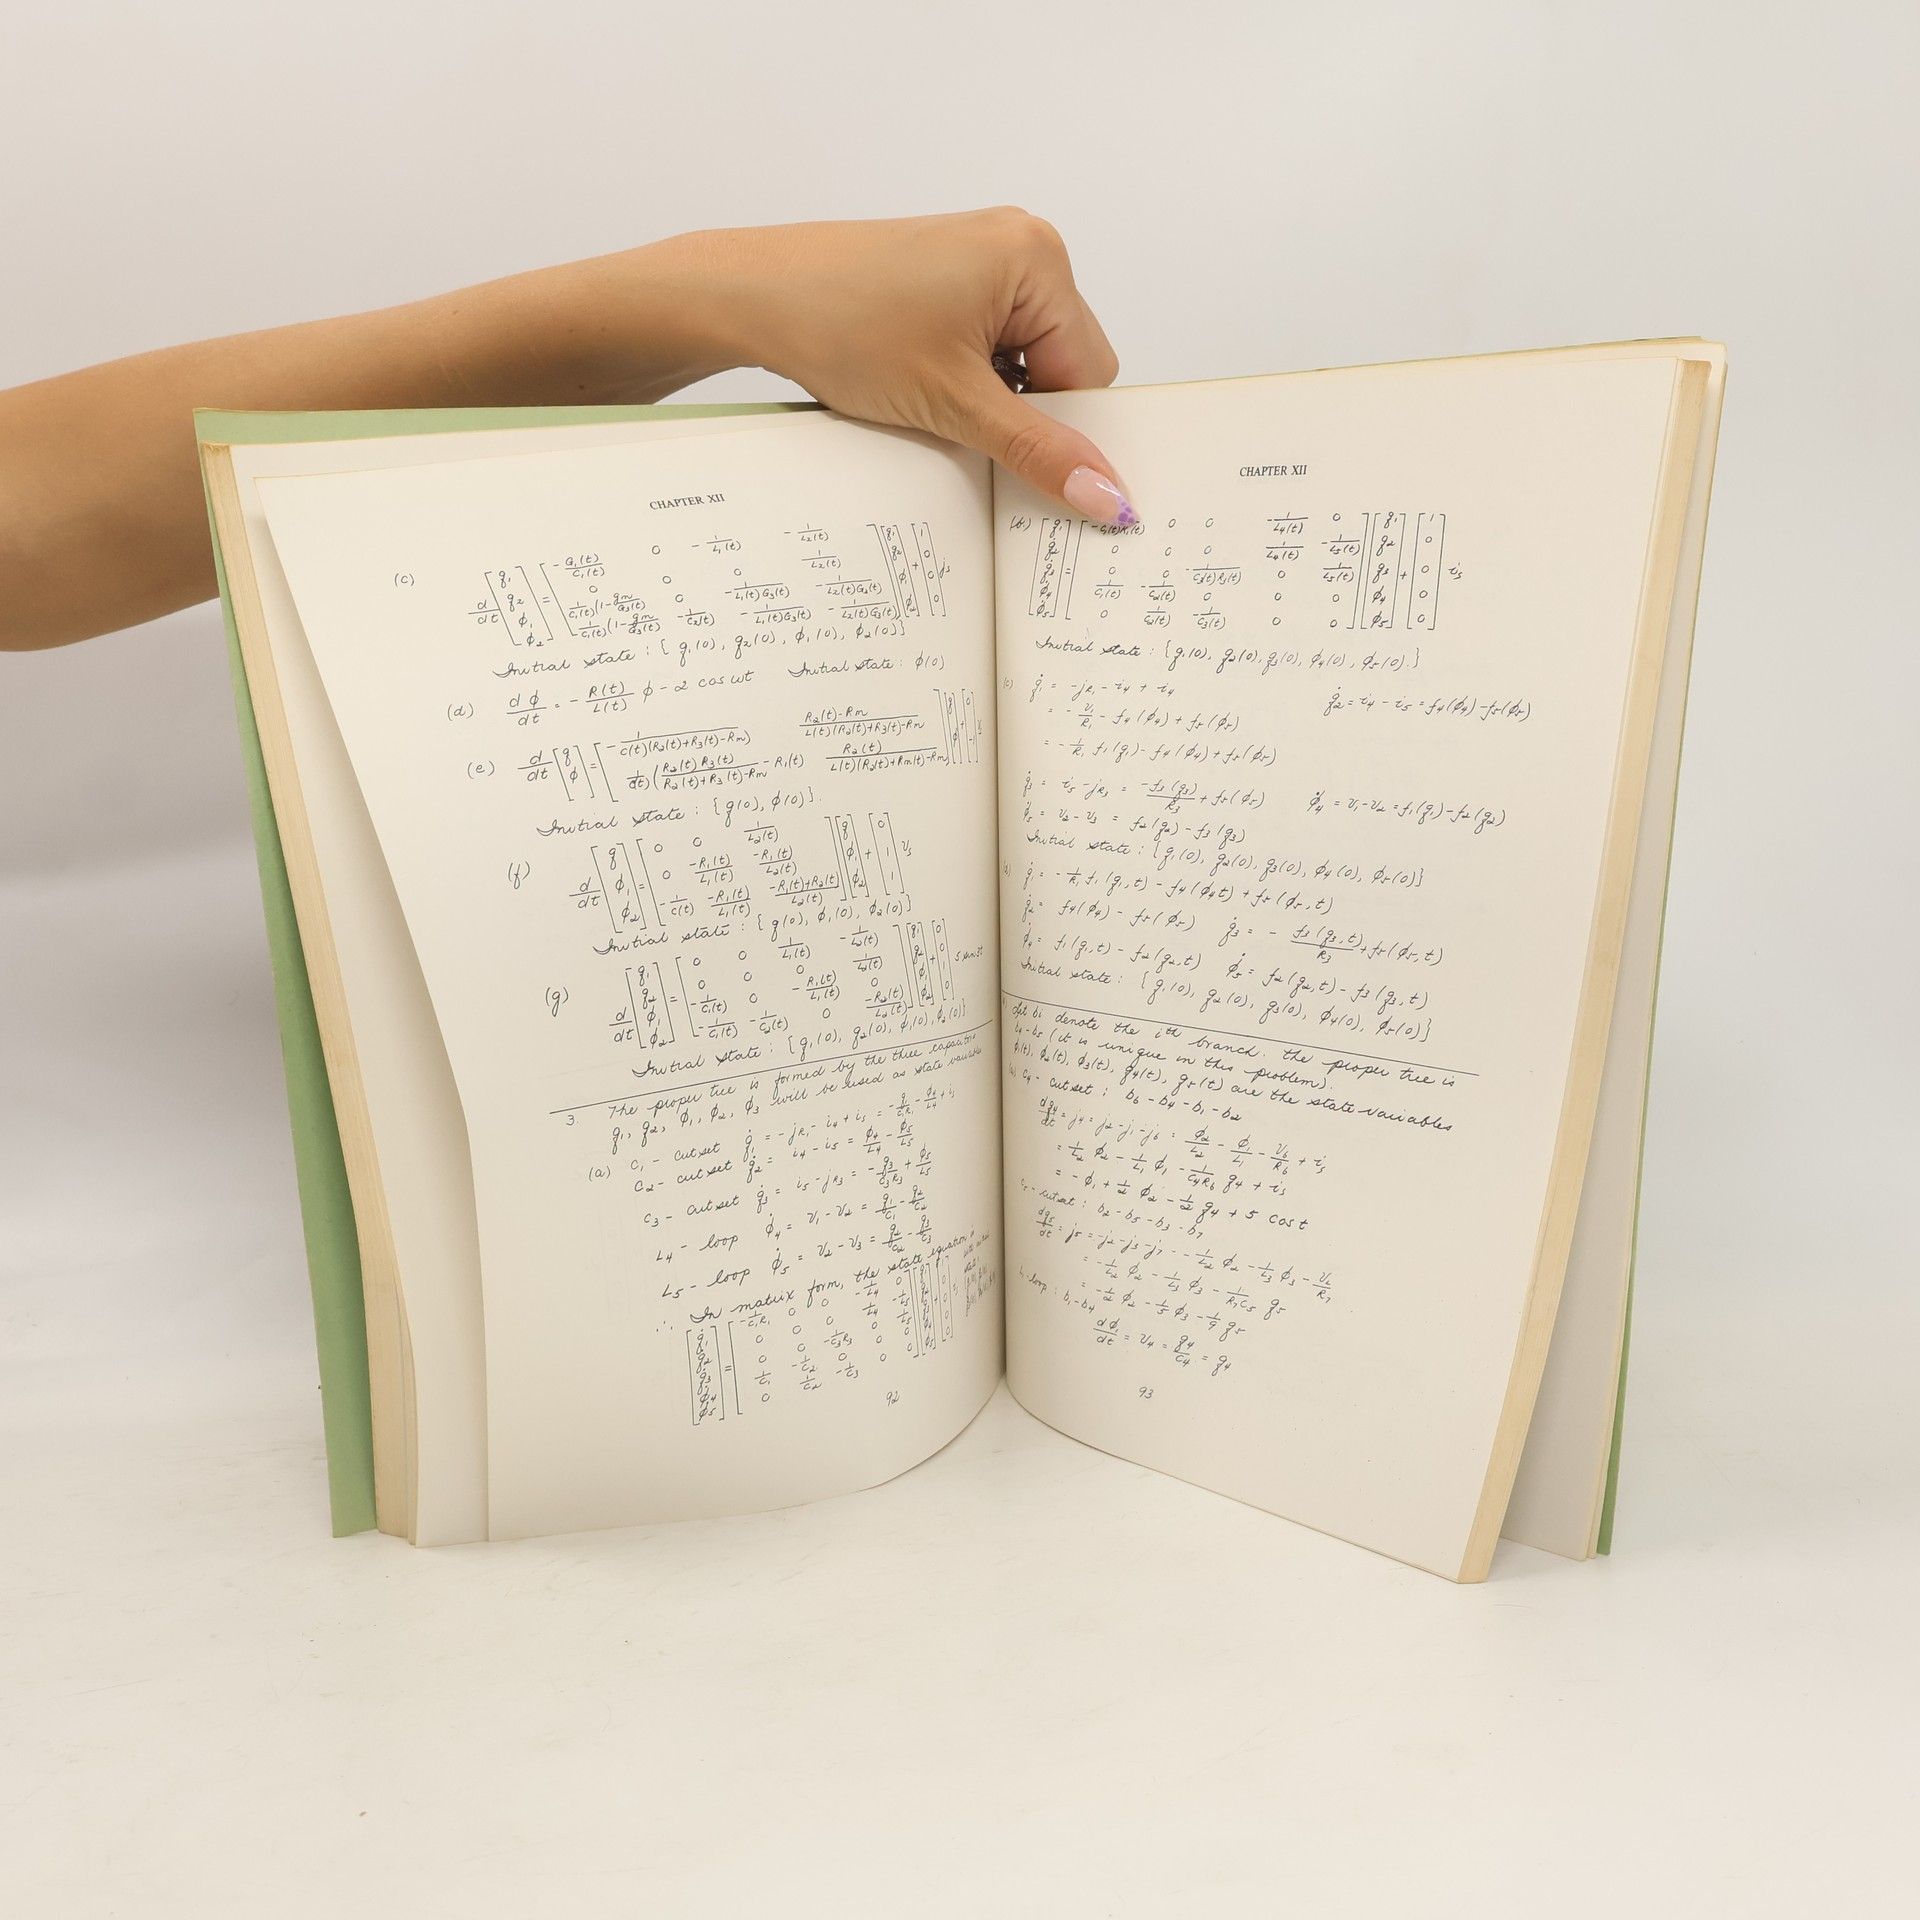 CHAPTER XII
(c) d/dt [q₁ q₂ φ₁ φ₂] = [-G₁(t)/C₁(t) 0 -1/L₁(t) -1/L₂(t)
0 0 0 1/L₂(t)
1/C₁(t)(1-gm/G₃(t)) 0 -1/L₁(t)G₃(t) -1/L₂(t)G₃(t)
1/C₁(t)(1-gm/G₃(t)) -1/C₂(t) -1/L₁(t)G₃(t) -1/L₂(t)G₃(t)] [q₁ q₂ φ₁ φ₂] + [1 0 0 0] js
Initial state : { q₁(0), q₂(0), φ₁(0), φ₂(0)}
(d) dφ/dt = - R(t)/L(t) φ - 2 cos ωt Initial state : φ(0)
(e) d/dt [q φ] = [-1/C(t)(R₂(t)+R₃(t)-Rm) R₂(t)-Rm/L(t)(R₂(t)+R₃(t)-Rm)
Initial state : { q(0), φ(0)}.
(f) d/dt [q φ₁ φ₂] = [0 0 1/L₂(t)
0 -R₁(t)/L₁(t) -R₁(t)/L₂(t)
-1/C(t) -R₁(t)/L₁(t) -R₁(t)+R₂(t)/L₂(t)] [q φ₁ φ₂] + [0 1 1] vs
Initial state : { q(0), φ₁(0), φ₂(0)}
(g) d/dt [q₁ q₂ φ₁ φ₂] = [0 0 1/L₁(t) -1/L₂(t)
0 0 0 1/L₂(t)
-1/C₁(t) 0 -R₁(t)/L₁(t) 0
-1/C₁(t) -1/C₂(t) 0 -R₂(t)/L₂(t)] [q₁ q₂ φ₁ φ₂] + 5 sin 3t
Initial state : { q₁(0), q₂(0), φ₁(0), φ₂(0)}
3. The proper tree is formed by the three capacitors
q₁, q₂, φ₁, φ₂, φ₃ will be used as state variables
(a) C₁ - cutset q̇₁ = -jR₁ - i₄ + is = -q₁/C₁R₁ - φ₄/L₄ + is
C₂ - cutset q̇₂ = i₄ - i₅ = φ₄/L₄ - φ₅/L₅
C₃ - cutset q̇₃ = i₅ - jR₃ = -q₃/C₃R₃ + φ₅/L₅
L₄ - loop φ̇₄ = v₁ - v₂ = q₁/C₁ - q₂/C₂
L₅ - loop φ̇₅ = v₂ - v₃ = q₂/C₂ - q₃/C₃
∴ In matrix form, the state equation is
[q̇₁ q̇₂ q̇₃ φ̇₄ φ̇₅] = [-1/C₁R₁ 0 0 -1/L₄ 0
0 0 0 1/L₄ -1/L₅
0 0 -1/C₃R₃ 0 1/L₅
1/C₁ -1/C₂ 0 0 0
0 1/C₂ -1/C₃ 0 0]
92
CHAPTER XII
(b) [q̇₁ q̇₂ q̇₃ φ̇₄ φ̇₅] = [-C₁(t)R₁(t) 0 0 -1/L₄(t) 0
0 0 0 1/L₄(t) -1/L₅(t)
0 0 -1/C₃(t)R₃(t) 0 1/L₅(t)
1/C₁(t) -1/C₂(t) 0 0 0
0 1/C₂(t) -1/C₃(t) 0 0] [q₁ q₂ q₃ φ₄ φ₅] + [1 0 0 0 0] is
Initial state : { q₁(0), q₂(0), q₃(0), φ₄(0), φ₅(0).}
(c) q̇₁ = -jR₁ - i₄ + i₄ q̇₂ = i₄ - i₅ = f₄(φ₄) - f₅(φ₅)
= - v₁/R₁ - f₄(φ₄) + f₅(φ₅)
= - 1/R₁ f₁(q₁) - f₄(φ₄) + f₅(φ₅)
q̇₃ = i₅ - jR₃ = -f₃(q₃)/R₃ + f₅(φ₅) φ̇₄ = v₁ - v₂ = f₁(q₁) - f₂(q₂)
φ̇₅ = v₂ - v₃ = f₂(q₂) - f₃(q₃)
Initial state : { q₁(0), q₂(0), q₃(0), φ₄(0), φ₅(0)}
(d) q̇₁ = - 1/R₁ f₁(q₁,t) - f₄(φ₄t) + f₅(φ₅,t)
q̇₂ = f₄(φ₄) - f₅(φ₅) q̇₃ = - f₃(q₃,t)/R₃ + f₅(φ₅,t)
φ̇₄ = f₁(q₁,t) - f₂(q₂,t) φ̇₅ = f₂(q₂,t) - f₃(q₃,t)
Initial state : { q₁(0), q₂(0), q₃(0), φ₄(0), φ₅(0)}
Let bi denote the ith branch. the proper tree is
b₄-b₅ (it is unique in this problem).
φ₁(t), φ₂(t), φ₃(t), q₄(t), q₅(t) are the state variables
(a) C₄ - cutset : b₆ - b₄ - b₁ - b₂
dq₄/dt = j₄ = j₂ - j₁ - j₆ = φ₂/L₂ - φ₁/L₁ - v₆/R₆ + is
= 1/L₂ φ₂ - 1/L₁ φ₁ - 1/C₄R₆ q₄ + is
= - φ₁ + 1/2 φ₂ - 1/2 q₄ + 5 cos t
C₅ - cutset : b₂ - b₅ - b₃ - b₇
dq₅/dt = j₅ = -j₂ - j₃ - j₇ = - 1/L₂ φ₂ - 1/L₃ φ₃ - v₆/R₇
= - 1/L₂ φ₂ - 1/L₃ φ₃ - 1/R₇C₅ q₅
= - 1/2 φ₂ - 1/5 φ₃ - 1/9 q₅
L₁ - loop : b₁ - b₄
dφ₁/dt = v₄ = q₄/C₄ = q₄
93